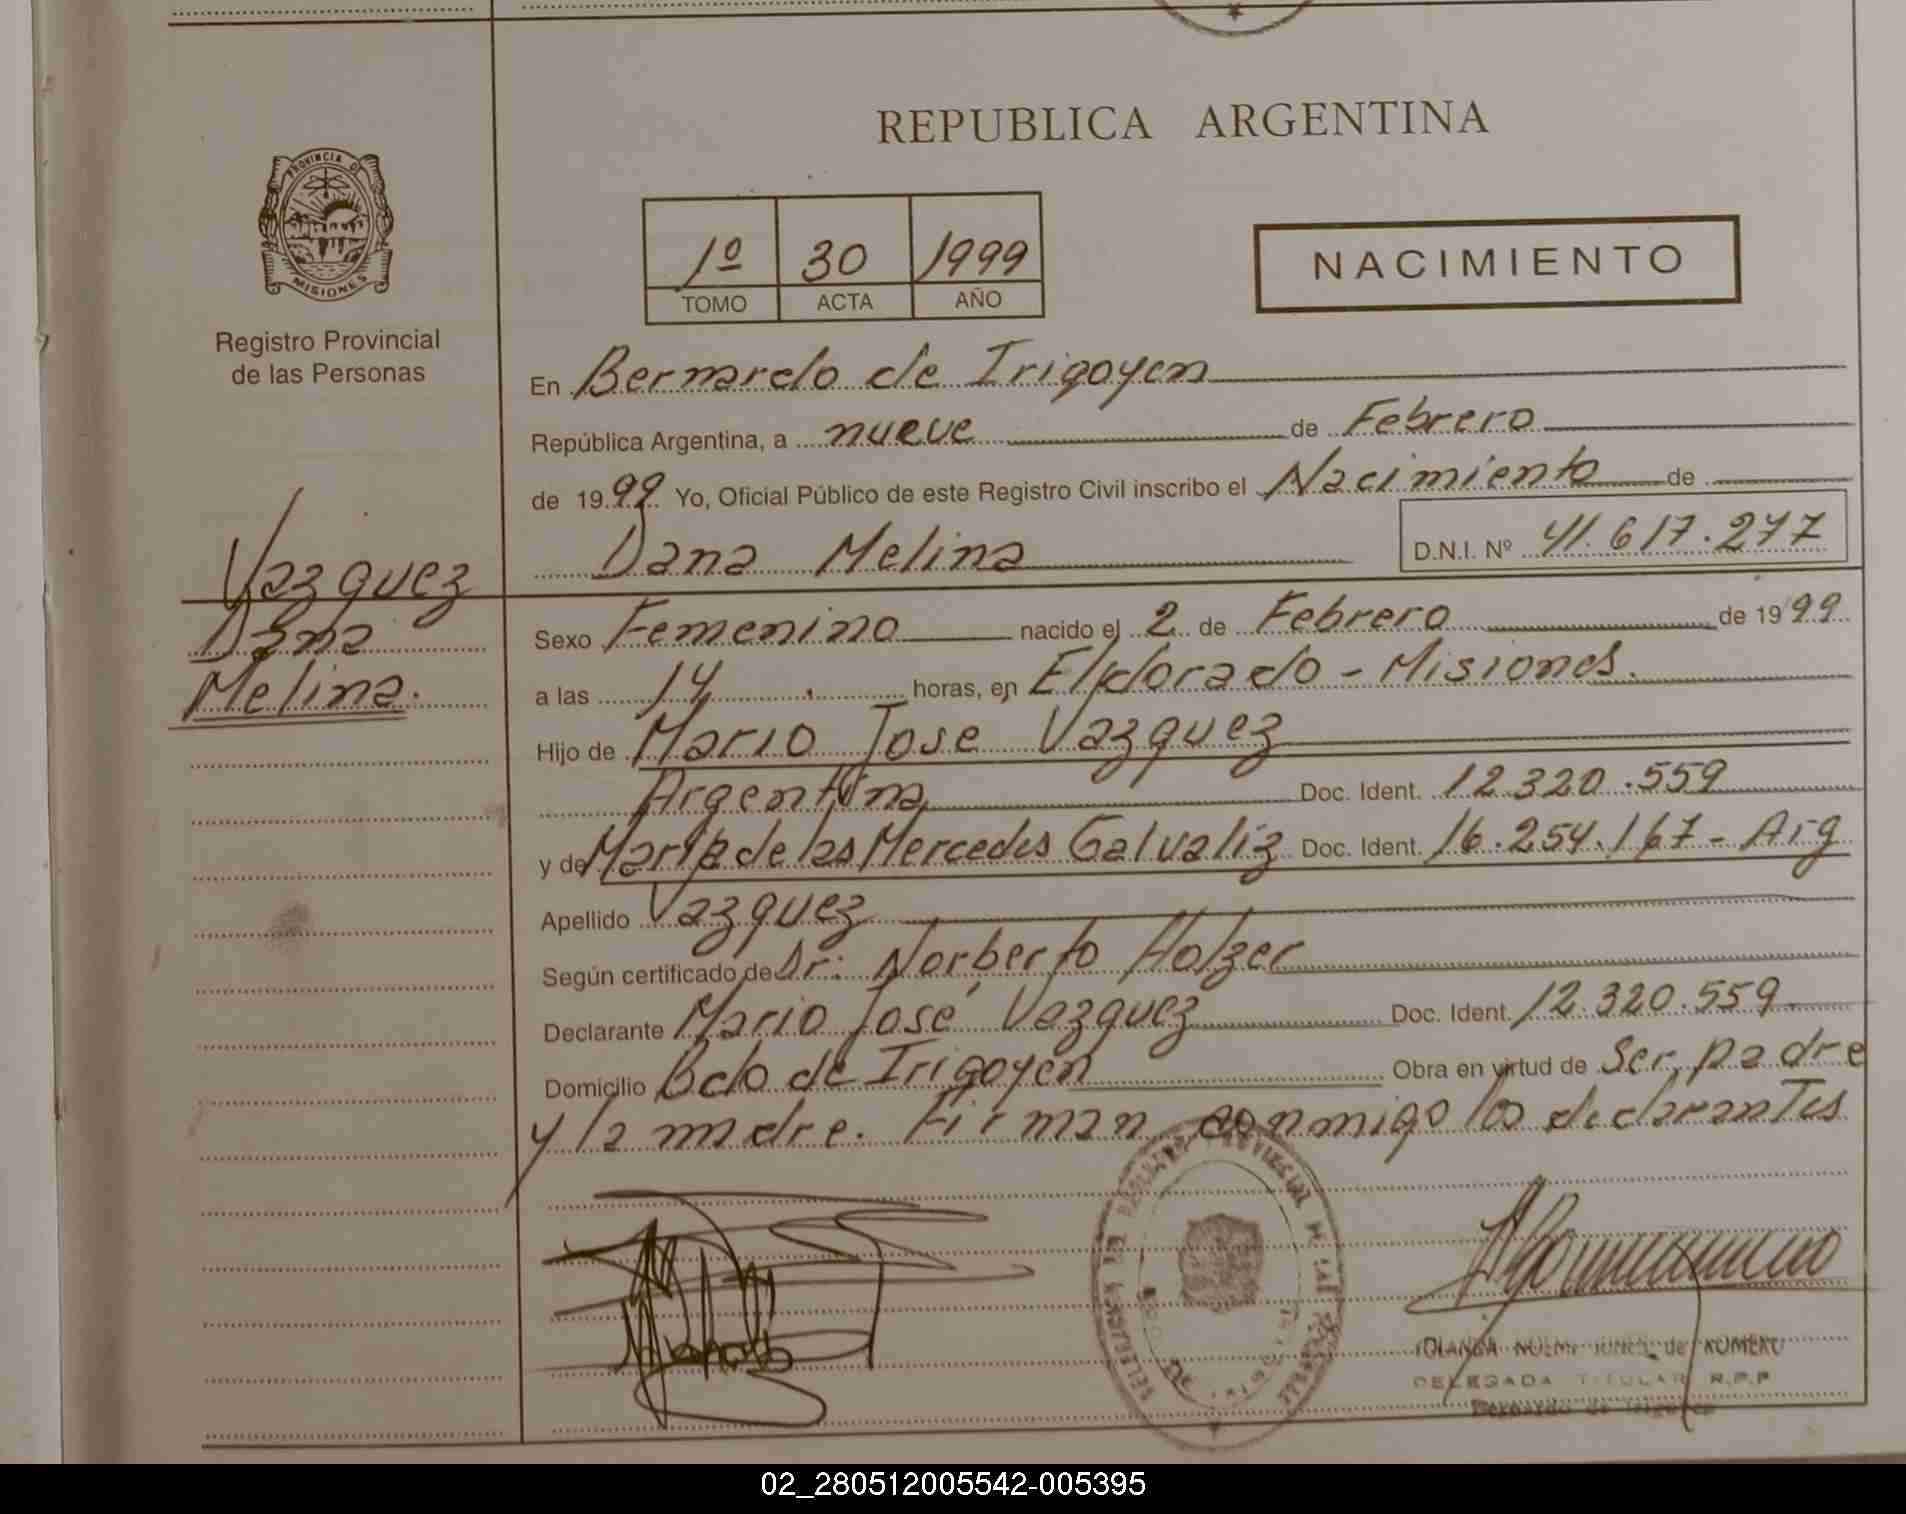 REPUBLICA ARGENTINA
PROVINCIA DE
MISIONES
Registro Provincial
de las Personas
1º 30 1999
TOMO ACTA AÑO
NACIMIENTO
En Bernardo de Irigoyen
República Argentina, a nueve de Febrero
de 1999 Yo, Oficial Público de este Registro Civil inscribo el Nacimiento de
Dana Melina D.N.I. Nº 41.617.277
Vazquez
Dana
Melina.
Sexo Femenino nacido el 2 de Febrero de 1999
a las 14 horas, en Eldorado - Misiones.
Hijo de Mario Jose Vazquez
Argentina Doc. Ident. 12.320.559
y de Maria de las Mercedes Galvaliz Doc. Ident. 16.254.167 - Arg
Apellido Vazquez
Según certificado de Dr: Norberto Holzer
Declarante Mario José Vazquez Doc. Ident. 12.320.559
Domicilio Bdo de Irigoyen Obra en virtud de Ser padre
y la madre. Firman conmigo los declarantes
NOEMI de ROMERO
DELEGADA TITULAR R.P.P
Bernardo de Irigoyen
02_280512005542-005395